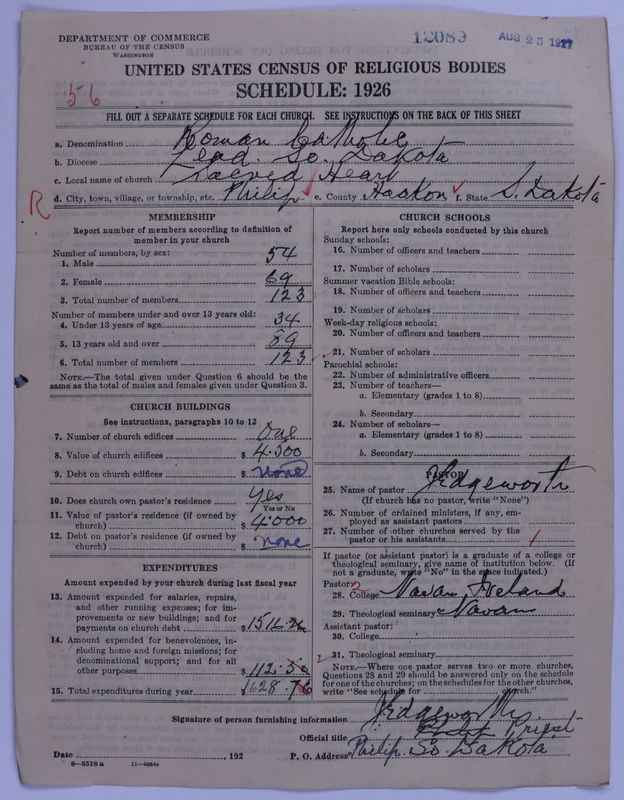 DEPARTMENT OF COMMERCE
BUREAU OF THE CENSUS
WASHINGTON
12089
AUG 25 1927
UNITED STATES CENSUS OF RELIGIOUS BODIES
SCHEDULE: 1926
56
FILL OUT A SEPARATE SCHEDULE FOR EACH CHURCH. SEE INSTRUCTIONS ON THE BACK OF THIS SHEET
a. Denomination Roman Catholic
b. Diocese Lead. So. Dakota
c. Local name of church Sacred Heart
d. City, town, village, or township, etc. Philip e. County Haakon f. State S. Dakota
R
MEMBERSHIP
Report number of members according to definition of
member in your church
Number of members, by sex:
1. Male 54
2. Female 69
3. Total number of members 123
Number of members under and over 13 years old:
4. Under 13 years of age 34
5. 13 years old and over 89
6. Total number of members 123
NOTE.—The total given under Question 6 should be
same as the total of males and females given under Question 3.
CHURCH BUILDINGS
See instructions, paragraphs 10 to 12
7. Number of church edifices One
8. Value of church edifices $ 4.500
9. Debt on church edifices $ none
10. Does church own pastor's residence Yes
Yes or No
11. Value of pastor's residence (if owned by
church) $ 4000
12. Debt on pastor's residence (if owned by
church) $ none
EXPENDITURES
Amount expended by your church during last fiscal year
13. Amount expended for salaries, repairs,
and other running expenses; for im-
provements or new buildings; and for
payments on church debt $
14. Amount expended for benevolences, in-
cluding home and foreign missions; for
denominational support; and for all
other purposes $ 112.50
15. Total expenditures during year $ 1628.76
CHURCH SCHOOLS
Report here only schools conducted by this church
Sunday schools:
16. Number of officers and teachers
17. Number of scholars
Summer vacation Bible schools:
18. Number of officers and teachers
19. Number of scholars
Week-day religious schools:
20. Number of officers and teachers
21. Number of scholars
Parochial schools:
22. Number of administrative officers
23. Number of teachers—
a. Elementary (grades 1 to 8)
b. Secondary
24. Number of scholars—
a. Elementary (grades 1 to 8)
b. Secondary
PASTOR
25. Name of pastor J Edgeworth
(If church has no pastor, write "None")
26. Number of ordained ministers, if any, em-
ployed as assistant pastors
27. Number of other churches served by the
pastor or his assistants 1
If pastor (or assistant pastor) is a graduate of a college or
theological seminary, give name of institution below. (If
not a graduate, write "No" in the space indicated.)
Pastor: 2
28. College Navan, Ireland
29. Theological seminary Navan
Assistant pastor:
30. College
2 31. Theological seminary
NOTE.—Where one pastor serves two or more churches,
Questions 28 and 29 should be answered only on the schedule
for one of the churches; on the schedules for the other churches,
write "See schedule for church."
Signature of person furnishing information J Edgeworth
Official title Priest
Date , 192 P. O. Address Philip. So. Dakota
8—5518 a 11—9051